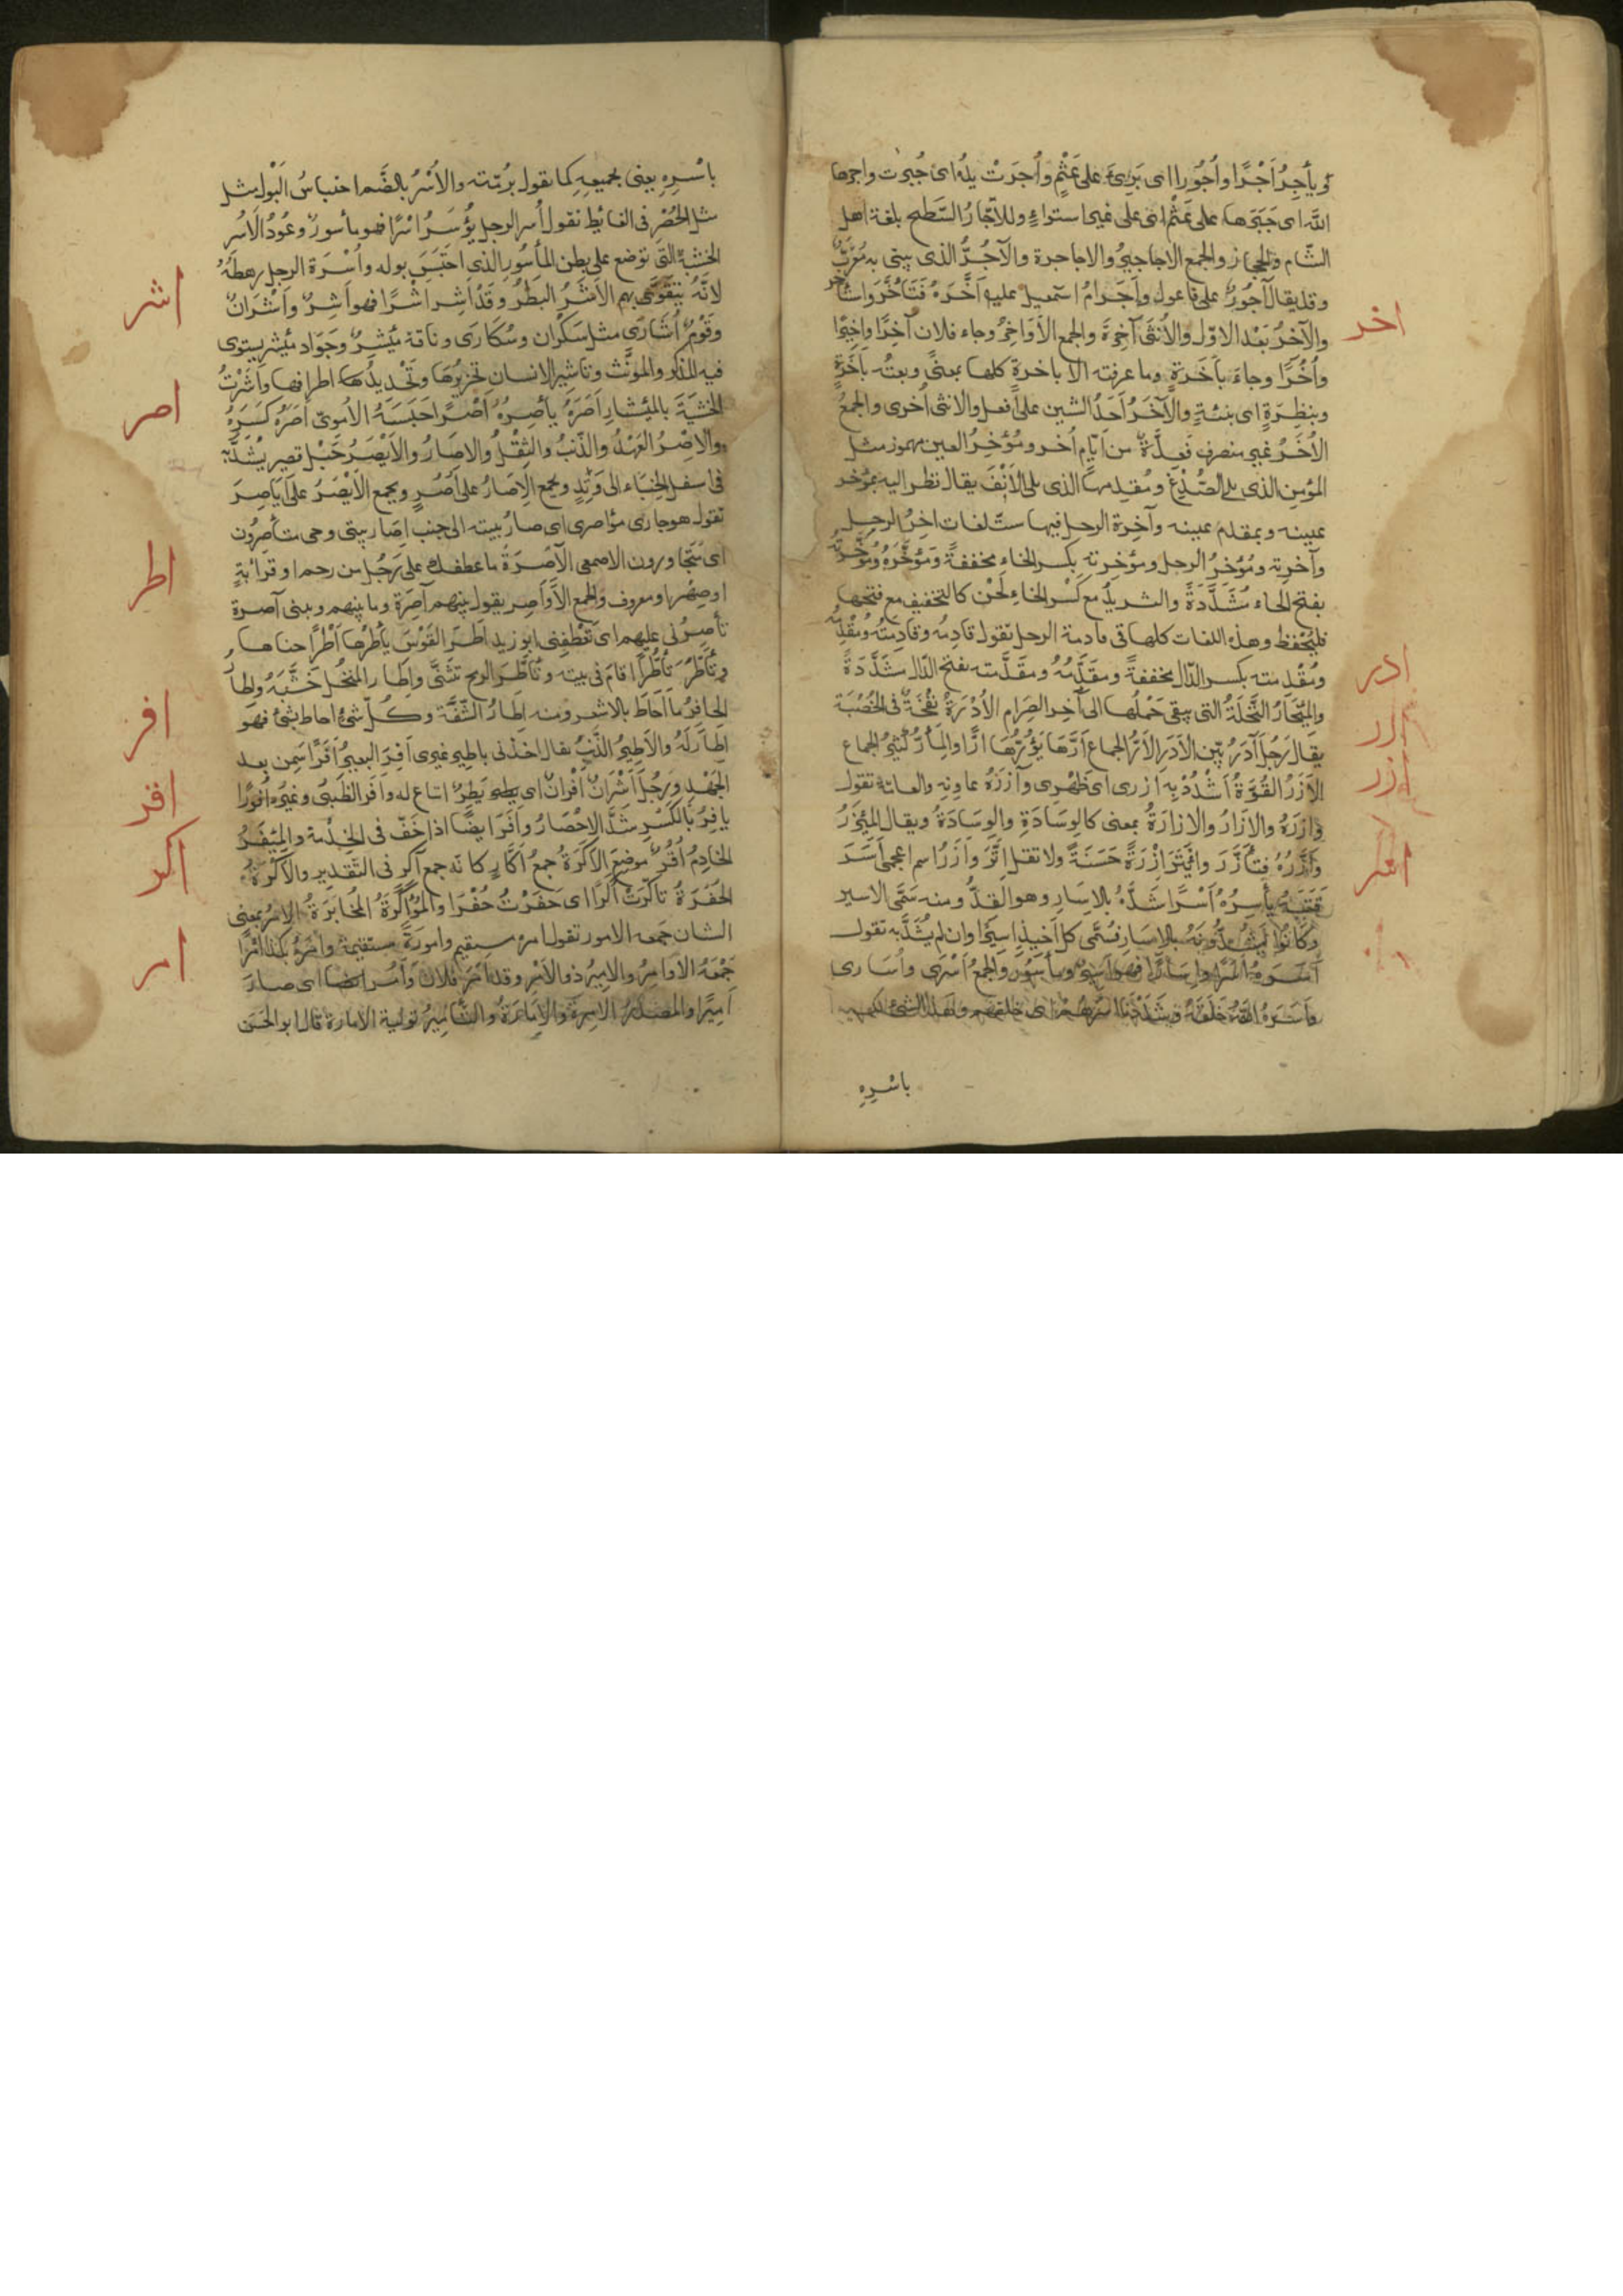 و يأجِرُ اَجْرًا واُجُورا اى بَرِئَ على عَثْمٍ واُجِرَتْ يدُه اى جُبِرت واجرها
الله اى جَبَرَها على عَثْم اى على غير استواءٍ وللاجّارُ السَّطح بلغة اهل
الشام والحجاز والجمع الاجاجيرُ والاجاجرة والآجُرُّ الذى يبنى به مُعَرَّبٌ
وقد يقال آجُورٌ على فاعول وآجَرامُ اسمعيل عليه اَخَّرَهُ فَتَأَخَّرَ واستأخر
والآخرُ بَعْد الاوّل والاُنثى آخِرة والجمع الاَوَاخِرُ وجاء فلان آخرًا واخيرًا
واُخُرًا وجاءَ بأَخَرَةٍ وما عرفته الا باخرةٍ كلها بمعنًى وبعتُه بأَخِرَةٍ
وبنَظِرَةٍ اى بنسئةٍ والآخَرُ اَحَدُ الشيئين على اَفعل والانثى اُخرى والجمعُ
الاُخَرُ غير منصرف فَعِدَّةٌ من اَيّام اُخر ومُؤخِرُ العين مهموز مثل
المؤمِن الذى يلى الصُّدْغ ومُقدِمها الذى يلى الاَنْفَ يقال نظر اليه بمؤخر
عينه وبمقدم عينه وآخِرة الرحل فيها ستّ لغات آخِرُ الرحل
وآخرته ومُؤْخِرُ الرحل ومؤخِرته بكسر الخاءِ مخففةً ومؤخَّره ومؤخَّرته
بفتح الخاء مُشَدَّدَةً والتشديدُ مع كَسْر الخاءِ لَحْن كالتخفيف مع فتحها
فليُحفظ وهذه اللغات كلها فى قادمة الرحل تقول قادِمُه وقادِمتُه ومُقْدِمُه
ومُقْدِمته بكسر الدّال مخففةً ومقَدَّمُهُ ومقَدَّمته بفتح الدّال مشَدَّدَةً
والمِئخارُ النَّخلَةُ التى يبقى حَمْلُها الى آخِر الصِرام الاُدْرَةُ نُفْخَةٌ فى الخُصْيَة
يقال رَجُل آدَرُ بَيّن الاَدَرِ الاَرُّ الجماع اَرَّها يَؤُرُّهَا ارًّا والمِأرُّ كثير الجماع
الاَزْرُ القُوَّةُ اشْدُدْ بِه ازرى اى ظَهْرى وآزَرَهُ عاونه والعامّة تقول
وازَرَهُ والازَارُ والازارَةُ بمعنى كالوِسَادِ والوِسَادَةُ ويقال للمِئزرُ
وأَزَّرَهُ فتأَزَّرَ وائْتَزَرَ اِزْرَةً حَسَنَةً ولا تقل اتَّزَرَ وآزَرُ اسم اعجمى اَسَرَ
قَتَبَهُ يأسِرُهُ اَسْرًا شَدَّهُ بالاِسَارِ وهو القِدُّ ومنه سُمّى الاسير
وكانُوا يَشُدُّونَهُ بالاِسَارِ فسُمّى كل اَخيذٍ اسيرًا وان لم يُشَدَّ به تقول
اَسَرَهُ اَسْرًا واِسَارًا فهو اَسِيْرٌ ومأسُوْر والجمعُ اَسْرَى واُسَارى
واَسَرَهُ اللهُ خَلَقَهُ وشَدَدْنَا اَسْرَهُمْ اى خلقهم وهذا الشئ لك
باسْرِهِ
اخر
ادر
ارر
ازر
اسر
باسْرِهِ يعنى بجميعِهِ كما تقول برُمّته والاُسْرُ بالضَّم احتباسُ البَوْل مثل
مثل الحُصْرِ فى الغائط تقول اُسِرَ الرجل يُؤْسَرُ اَسْرًا فهو مأسورٌ وعُوْدُ الاُسْرِ
الخشبةُ التى توضع على بطن المأسُورِ الذى احْتَبَسَ بوله واُسْرَة الرجل رهطُهُ
لانّهُ يَتَقَوَّى بهم الاَشَرُ البَطَرُ وقَدْ اَشِرَ اَشَرًا فهو اَشِرٌ واَشْرَانُ
وقَوْمٌ اُشَارَى مثل سَكْران وسُكَارَى وناقة مِئْشِيرٌ وجَوَاد مِئْشِير يستوى
فيه المذكّر والمونّث وتأشير الانسان تحزيزُها وتَحْدِيدُ اطرافها واَشَرْتُ
الخشَبَةَ بالمِئْشار اَصَرَهُ يأصِرُهُ اَصْرًا حَبَسَهُ الاُمَوىّ اَصَرَهُ كسَرَهُ
والاِصْرُ العَهْدُ والذّنبُ والثِقْلُ والاِصَارُ والاَيْصَرُ حَبْل قصير يُشَدُّ به
فى اسفل الخِبَاء الى وَتِدٍ وجمع الاِصَارُ على اُصُرٍ ويجمع الاَيْصَرُ على اَيَاصِرَ
تقول هو جارى مؤاصرى اى اِصارُ بيته الى جنب اِصار بيتى وحى متأَصِرُون
اى متجاورون الاصمعى الآصِرَةُ ما عطفك على رَجُل من رحم او قرابَةٍ
او صِهْر او معروف والجمع الاَوَاصِر يقول بينهم آصِرَة وما بينهم وبينى آصرة
تأصِرُنى عليهم اى تَعْطِفنى ابو زيد اَطَرَ القَوْسَ يأطِرُها اَطْرًا حناها
وتأطَّرَ تأَطُّرًا اقامَ فى بيته وتأطَّرَ الرمح تثنَّى واِطار المنخُل خَشَبُهُ واِطارُ
الحافِرُ ما احاطَ بالاشعر ومنه اِطارُ الشَّفَة وكُلّ شئ احاط بشئ فهو
اِطارٌ لَهُ والاَطِيرُ الذَّنْبُ يقال اخذنى باطِير غيرى اَفِرَ البعيرُ اَفَرًا سَمِن بعد
الجَهْدِ ورَجُل اَشْرَانُ اَفْرانُ اى بَطِرٌ اتباع له واَفَر الظَبْىُ وغيره اُفُورًا
يافِرُ بالكَسْرِ شَدَّ الاِحْضَارُ واَفَرَ ايضًا اذا خَفّ فى الخِدْمة والمِئْفَرُ
الخادِمُ اُقُرٌ موضع الاَكَرَةُ جمعُ اَكّار كانّه جمع آكِرٍ فى التّقدير والاُكْرَةُ
الحُفْرَةُ تأكّرْتُ اُكَرًا اى حَفَرْتُ حُفَرًا والمُؤاكَرَةُ المُخابَرَةُ الامْرُ بمعنى
الشان جمعه الامور تقول امر مستقيم وامورهُ مستقيمة وامَرَهُ بكذا اَمْرًا
جَمْعُهُ الاوامِرُ والاميرُ ذو الاَمْر وقد اَمَرَ فلانٌ واَمُر ايضا اى صارَ
اَمِيْرًا والمصدرُ الاِمْرَةُ والاِمَارَةُ والتّأمِيرُ تولية الامارة قال ابو الحَسَن
اشر
اصر
اطر
افر
اقر
اكر
امر